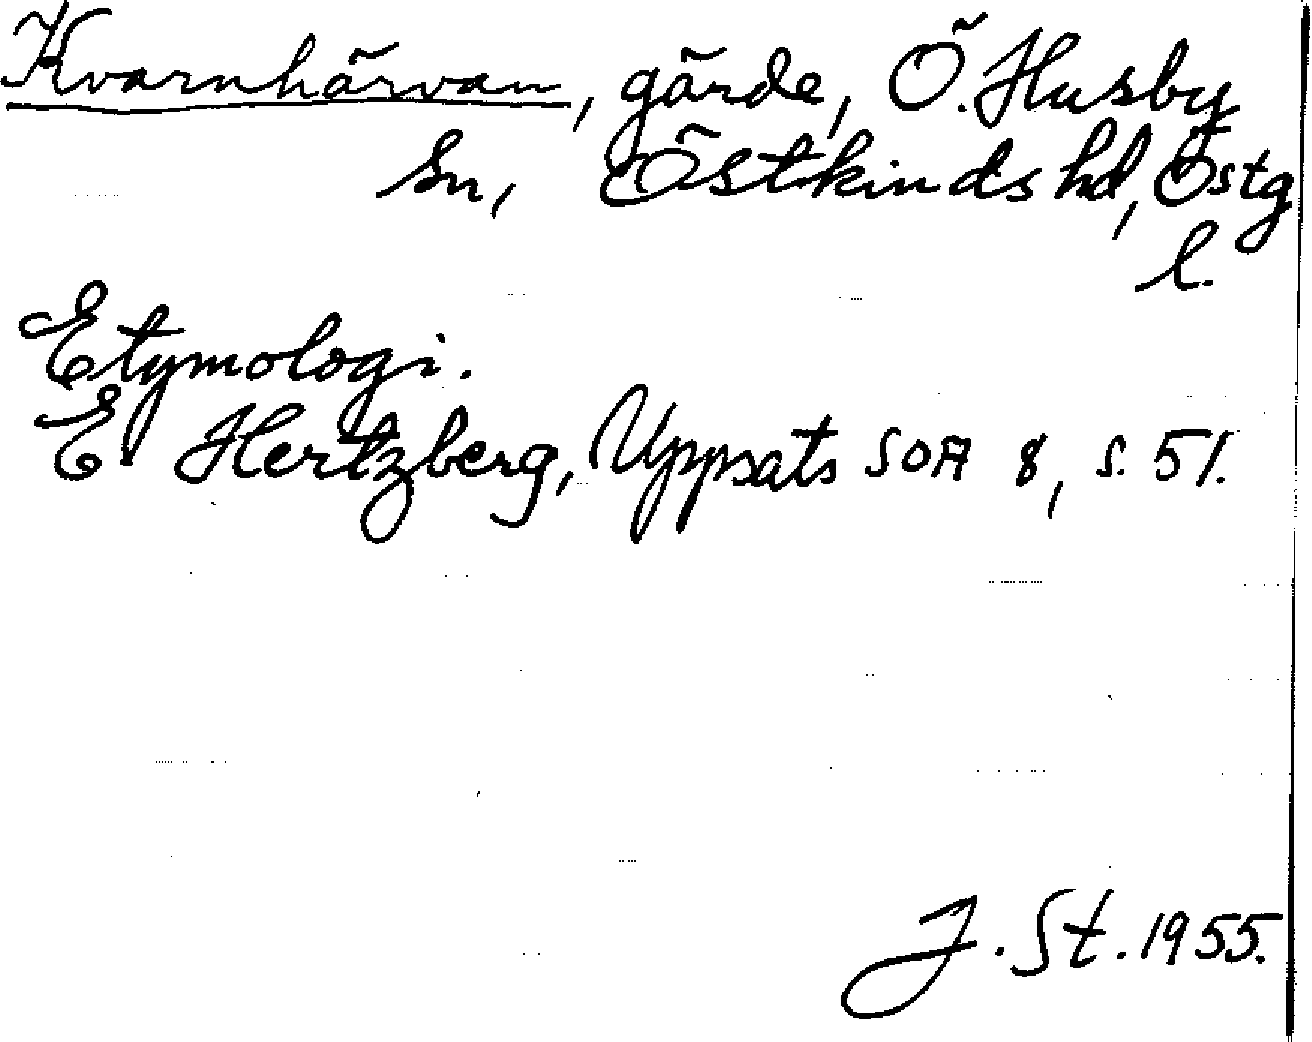 Kvarnhärvan, gärde, Ö. Husby
sn, Östkinds hd, Östg
l.
Etymologi.
E Hertzberg, Uppsats SOA 8, s. 51.
J. St. 1955.